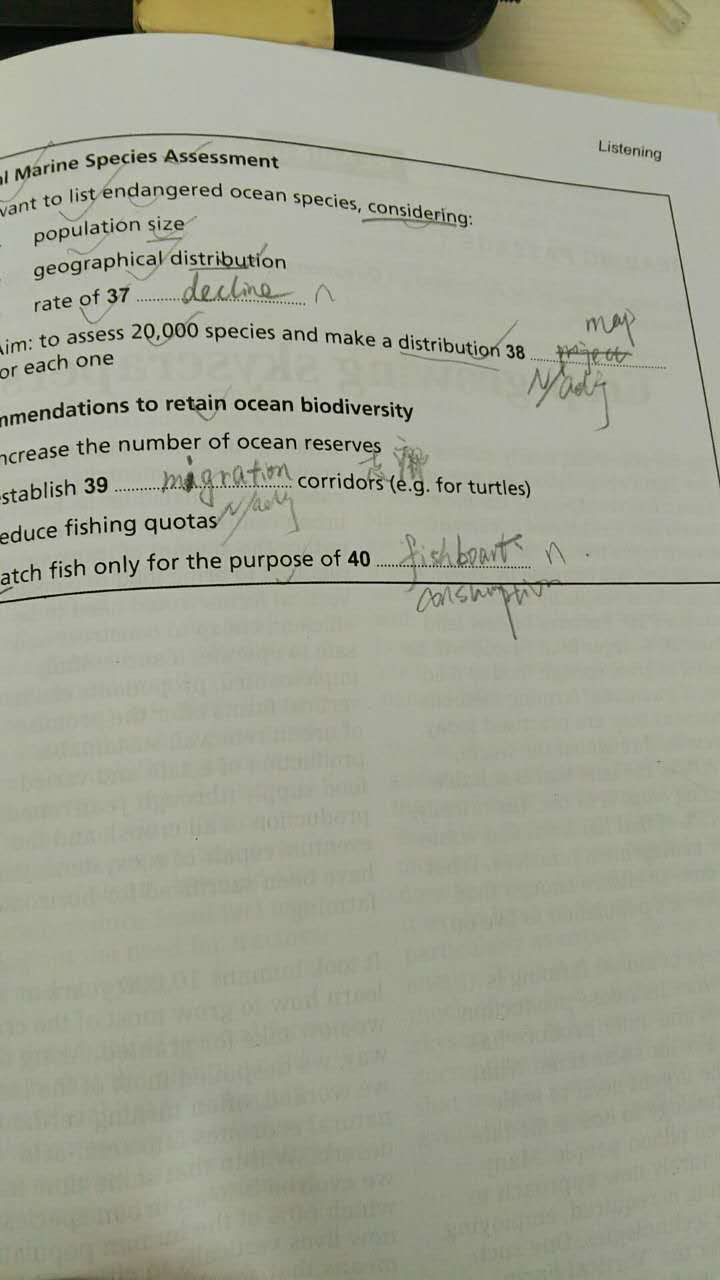 Listening
l Marine Species Assessment
vant to list endangered ocean species, considering:
population size
geographical distribution
rate of 37 decline n
map
im: to assess 20,000 species and make a distribution 38 project
or each one
N/adj
mmendations to retain ocean biodiversity
ncrease the number of ocean reserves
stablish 39 migration corridors (e.g. for turtles)
N/adj
educe fishing quotas
atch fish only for the purpose of 40 fishboart n.
consumption